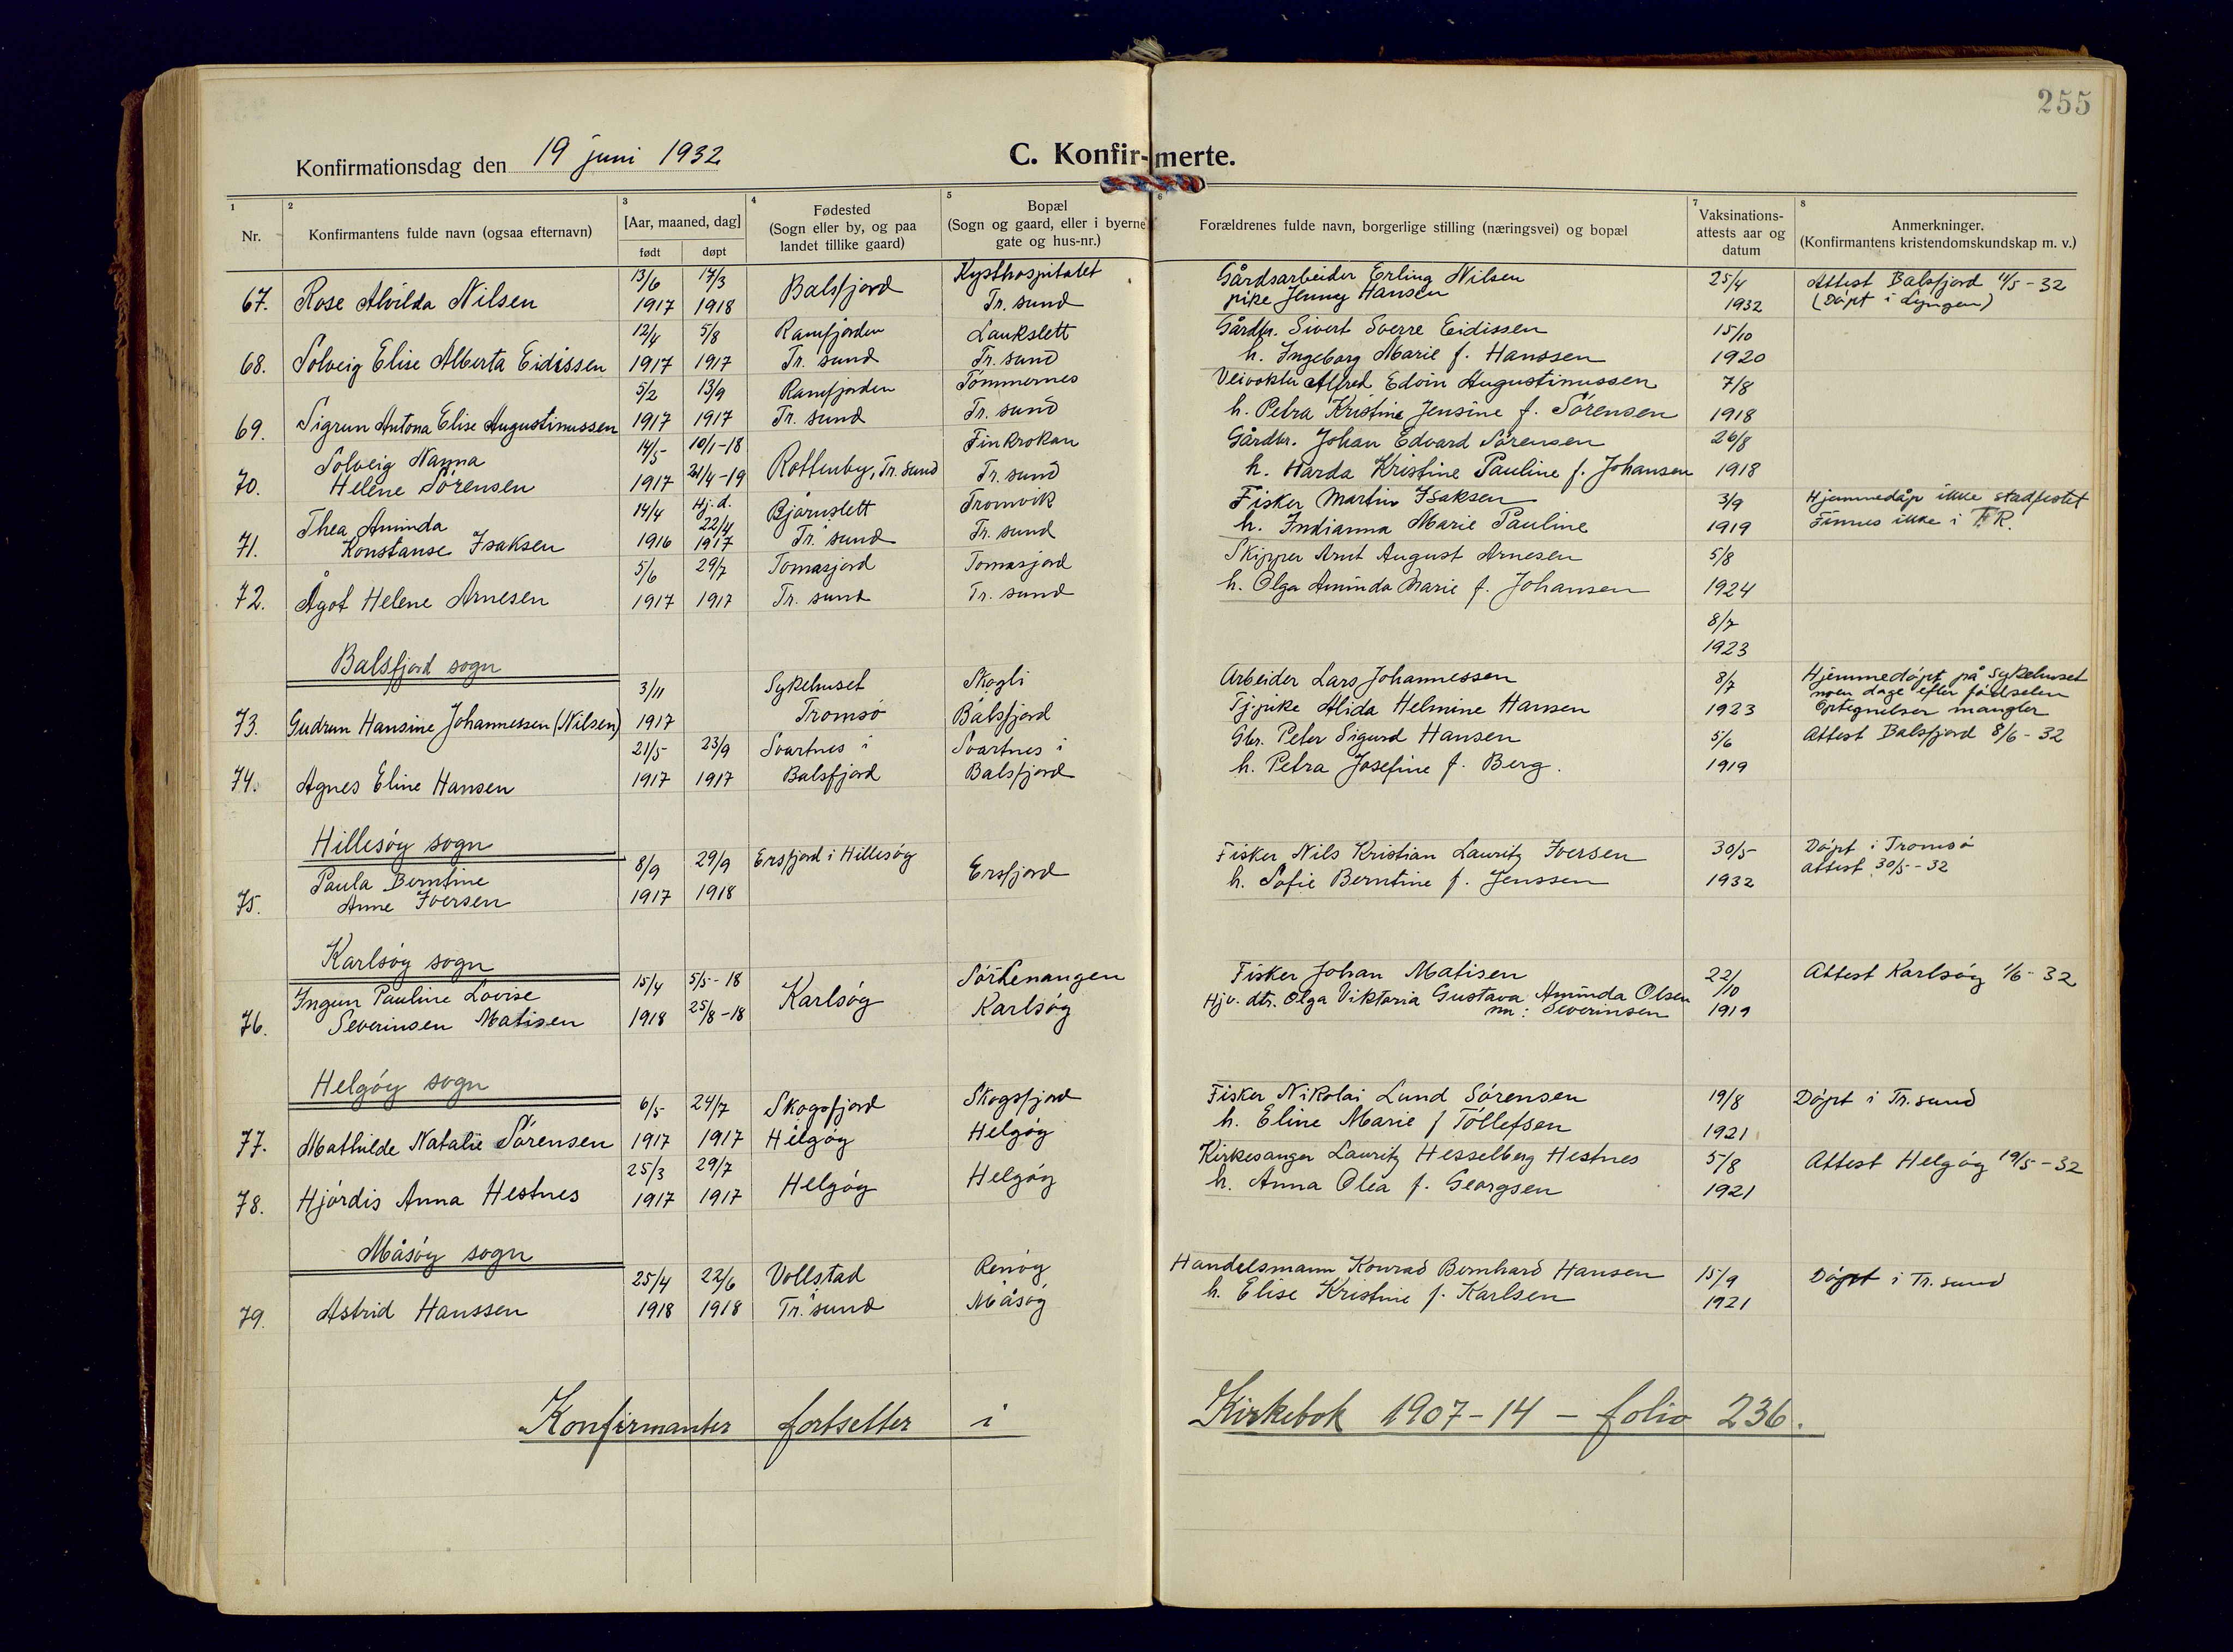 255
Konfirmationsdag den 19 juni 1932
C. Konfir-merte.
1 2 3 4 5 6 7 8
Nr.
Konfirmantens fulde navn (ogsaa efternavn)
[Aar, maaned, dag]
født døpt
Fødested
(Sogn eller by, og paa
landet tillike gaard)
Bopæl
(Sogn og gaard, eller i byerne
gate og hus-nr.)
Forældrenes fulde navn, borgerlige stilling (næringsvei) og bopæl
Vaksinations-
attests aar og
datum
Anmerkninger.
(Konfirmantens kristendomskundskap m. v.)
13/6 17/3 Kysthospitalet Gårdsarbeider Erling Nilsen 25/4 Attest Balsfjord 11/5-32
67. Rose Alvilda Nilsen 1917 1918 Balsfjord Tr. sund pike Jenny Hansen 1932 (Döpt i Lyngen)
12/4 5/8 Ramfjorden Laukslett Gårdbr. Sivert Sverre Eidissen 15/10
68. Solveig Elise Alberta Eidissen 1917 1917 Tr. sund Tr. sund h. Ingeborg Marie f. Hanssen 1920
5/2 13/9 Ramfjorden Tömmernes Veivokter Alfred Edvin Augustinussen 7/8
69. Sigrun Antona Elise Augustinussen 1917 1917 Tr. sund Tr. sund h. Petra Kristine Jensine f. Sörensen 1918
Solveig Nanna 14/5 10/1-18 Finkrokan Gårdbr. Johan Edvard Sörensen 26/8
70. Helene Sörensen 1917 21/4-19 Rottenby, Tr. sund Tr. sund h. Harda Kristine Pauline f. Johansen 1918
Thea Aminda 14/4 Hj. d. 22/4 Björnslett Tromvik Fisker Martin Isaksen 3/9 Hjemmedåp ikke stadfestet
71. Konstanse Isaksen 1916 1917 Tr. sund Tr. sund h. Indianna Marie Pauline 1919 Finnes ikke i FR.
5/6 29/7 Tomasjord Tomasjord Skipper Arnt August Arnesen 5/8
72. Ågot Helene Arnesen 1917 1917 Tr. sund Tr. sund h. Olga Aminda Marie f. Johansen 1924
8/7
1923
Balsfjord sogn
3/11 Sykehuset Skogli Arbeider Lars Johannessen 8/7 Hjemmedöpt på Sykehuset
noen dage efter födselen
73. Gudrun Hansine Johannessen (Nilsen) 1917 Tromsö Balsfjord Tj.pike Alida Helmine Hansen 1923 Optegnelser mangler
21/5 23/9 Svartnes i Svartnes i Gbr. Peter Sigurd Hansen 5/6 Attest Balsfjord 8/6-32
74. Agnes Eline Hansen 1917 1917 Balsfjord Balsfjord h. Petra Josefine f. Berg. 1919
Hillesöy sogn
Paula Berntine 8/9 29/9 Ersfjord i Hillesöy Ersfjord Fisker Nils Kristian Lauritz Iversen 30/5 Döpt i Tromsö
75. Anne Iversen 1917 1918 h. Sofie Berntine f. Jenssen 1932 attest 30/5-32
Karlsöy sogn
Ingun Pauline Lovise 15/4 5/5-18 Karlsöy Sörlenangen Fisker Johan Matisen 22/10 Attest Karlsöy 1/6-32
76. Severinsen Matisen 1918 25/8-18 Karlsöy Hjv. dtr. Olga Viktoria Gustava Aminda Olsen 1919
nu: Severinsen
Helgöy sogn
6/5 24/7 Skogsfjord Skogsfjord Fisker Nikolai Lund Sörensen 19/8 Döpt i Tr. sund
77. Mathilde Natalie Sörensen 1917 1917 Helgöy Helgöy h. Eline Marie f Töllefsen 1921
25/3 29/7 Helgöy Helgöy Kirkesanger Lauritz Hesselberg Hestnes 5/8 Attest Helgöy 19/5-32
78. Hjördis Anna Hestnes 1917 1917 h. Anna Olea f. Georgsen 1921
Måsöy sogn
25/4 22/6 Vollstad Renöy Handelsmann Konrad Bernhard Hansen 15/9 Döpt i Tr. sund
79. Astrid Hanssen 1918 1918 Tr. sund Måsöy h. Elise Kristine f. Karlsen 1921
Konfirmanter fortsetter i Kirkebok 1907-14 - folio 236.